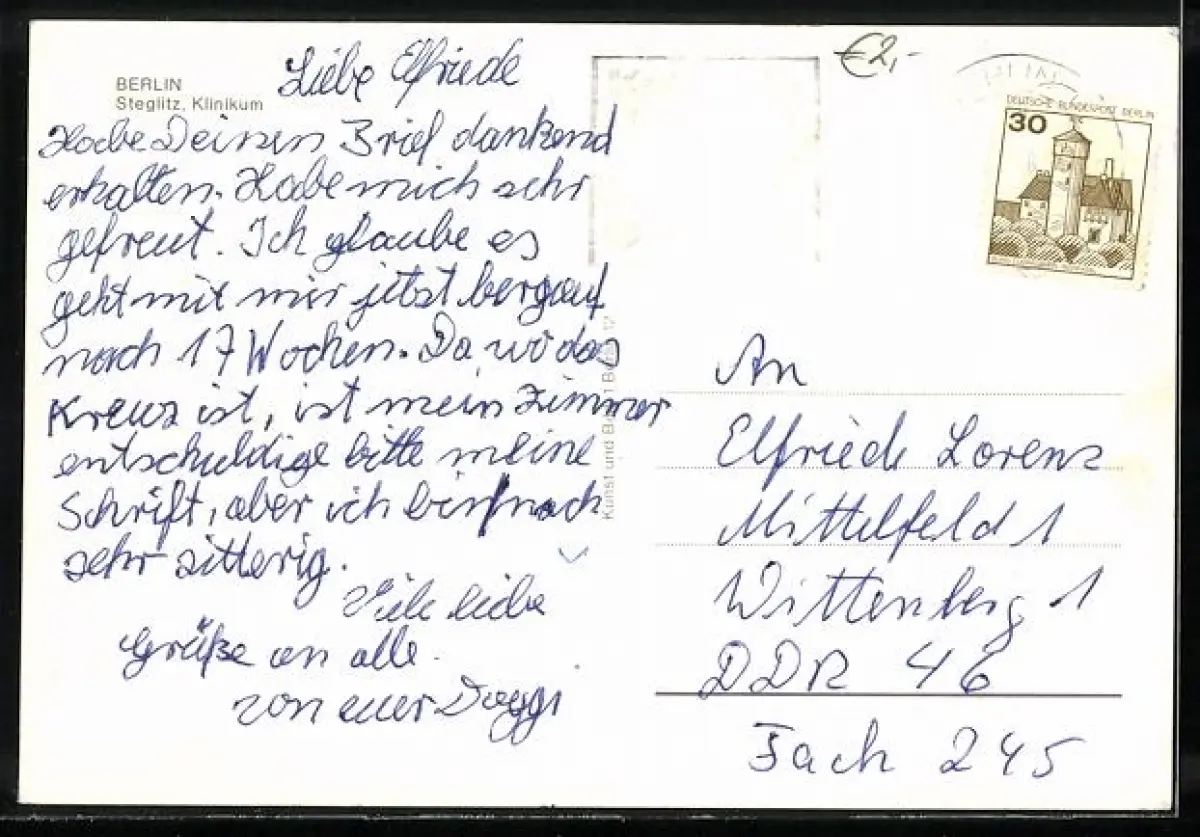 BERLIN
Steglitz, Klinikum
Liebe Elfriede
Habe Deinen Brief dankend
erhalten. Habe mich sehr
gefreut. Ich glaube es
geht mit mir jetzt bergauf
nach 17 Wochen. Da, wo das
Kreuz ist, ist mein Zimmer
entschuldige bitte meine
Schrift, aber ich bin noch
sehr zitterig.
Viele liebe
Grüße an alle.
von eurer
€2,-
DEUTSCHE BUNDESPOST BERLIN
30
Kunst und Berlin 12
An
Elfriede Lorenz
Mittelfeld 1
Wittenberg 1
DDR 46
Fach 245